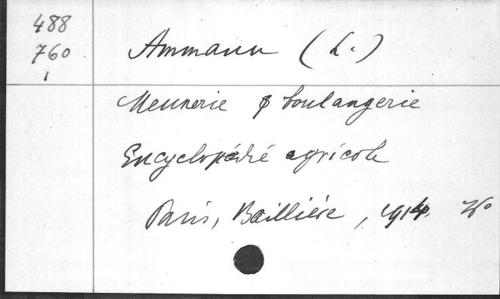 488
760
1
Ammann (L.)
Meunerie & boulangerie
Encyclopédie agricole
Paris, Baillière, 1914.